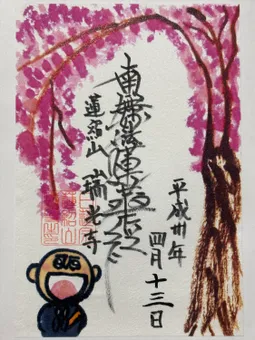 平成卅年
四月十三日
南無妙法蓮華経
蓮紹山 瑞光寺